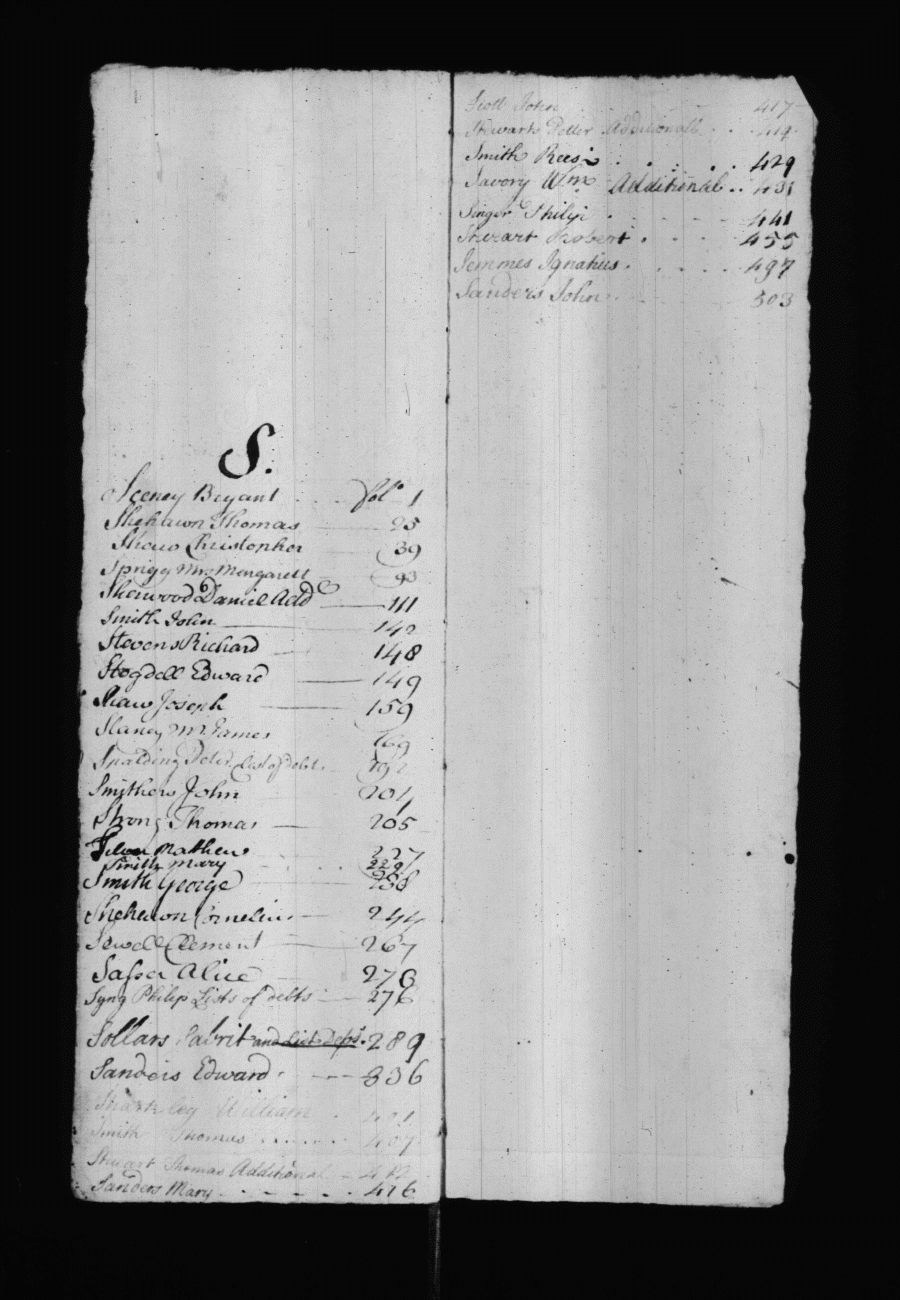 S.
Sceney Bryant . . . Fol.o 1
Shehawn Thomas 25
Shaw Christopher 39
Sprigg Mrs Mengarett 93
Sherwood Daniel Add 111
Smith John 142
Stevens Richard 148
Stogdell Edward 149
Shaw Joseph 159
Slaney Mr James 169
Spalding Peter List of debt. 192
Smithers John 201
Strong Thomas 205
Mathew 227
Smith Mary 229
Smith George 238
Shehawn Cornelius 244
Sewell Clement 267
Sasser Alice 273
Syng Philip Lists of debts 276
Sollars Sabrit and List Debts 289
Sanders Edward 336
William 401
Smith Thomas 407
Stewart Thomas Additional
Sanders Mary 416
Scott John 417
Stewart Peter Additional 419
Smith Rees . . . . 429
Savory Wm Additional .. 431
Singer Philip 441
Stewart Robert 455
Semmes Ignatius 497
Sanders John 503